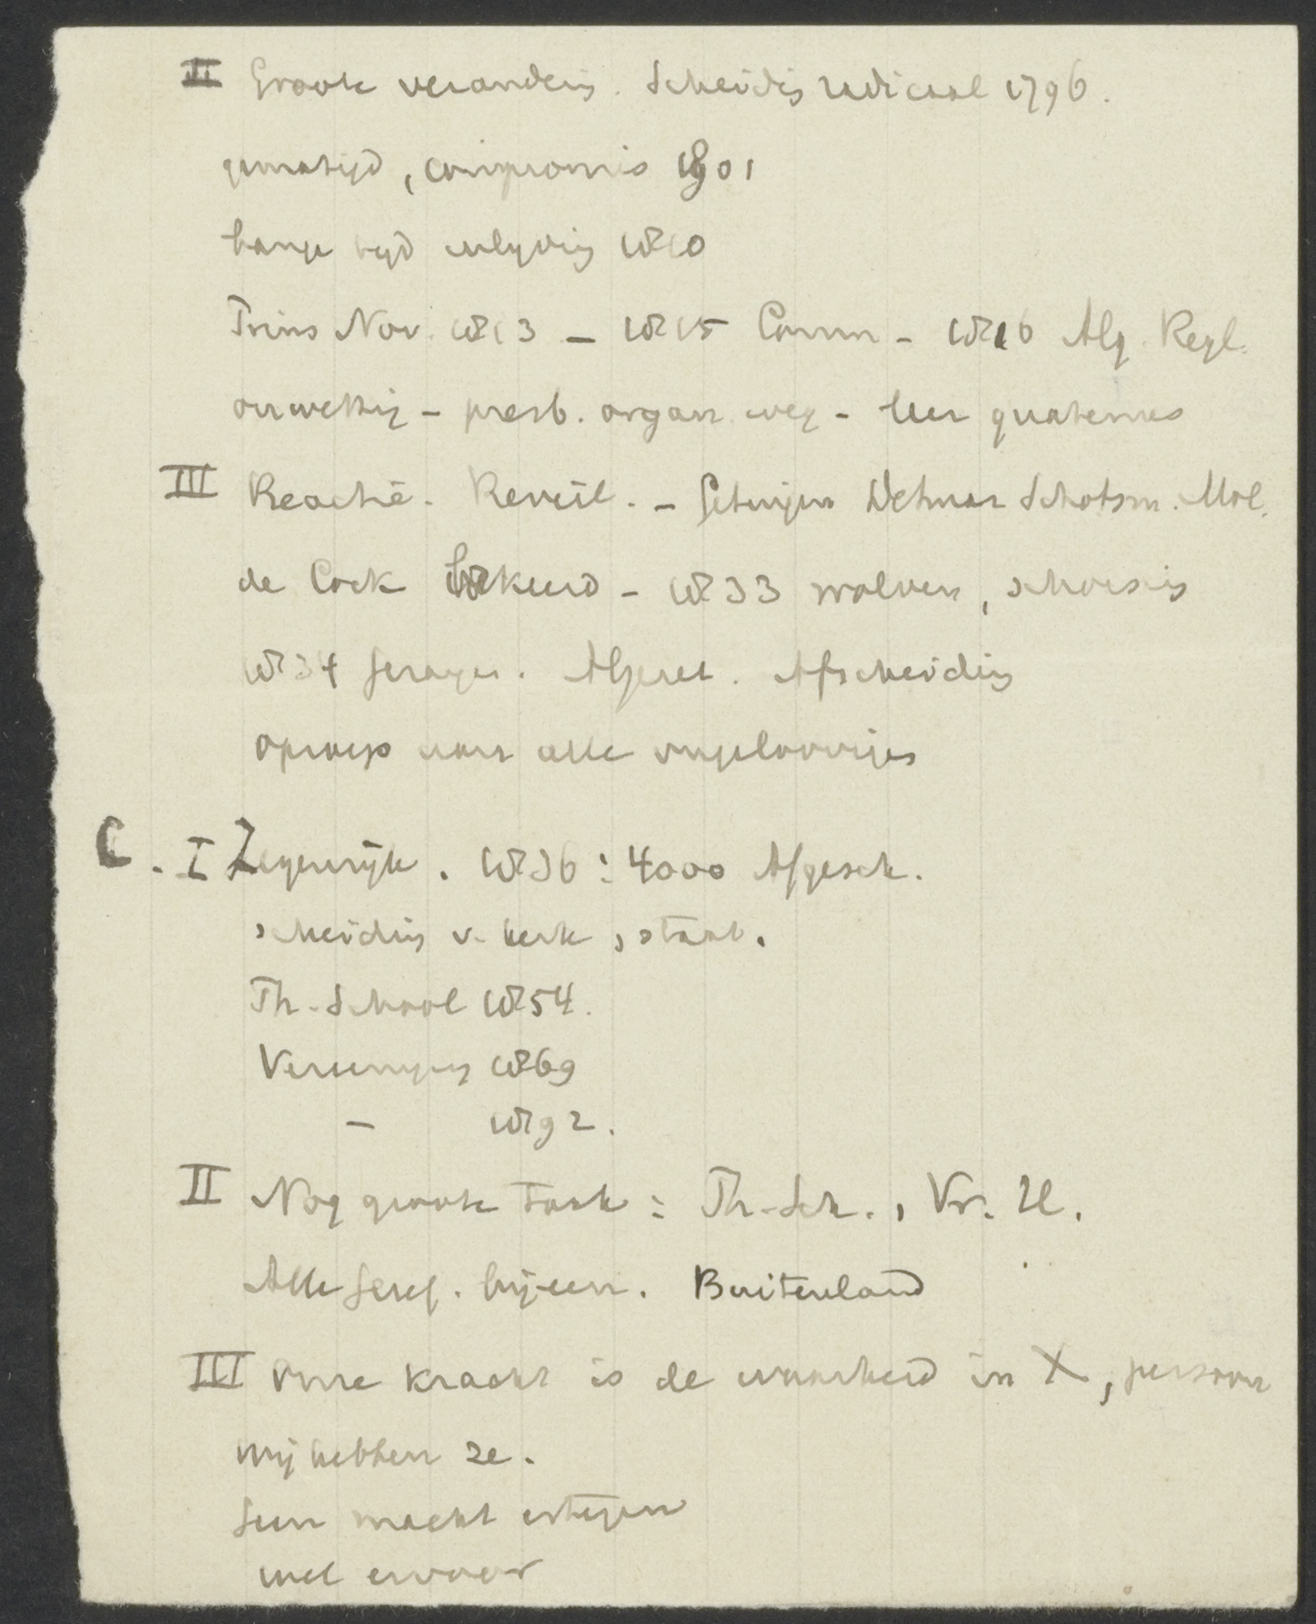 II Groote verandering. Scheiding radicaal 1796.
gematigd, compromis 1801
bange tijd inlijving 1810
Prins Nov. 1813 - 1815 Comm - 1816 Alg. Regl.
onwettig - presb. organ. weg - leer quatenus
III Reactie. Reveil. - Getuigen Detmar Schotsm. Mol.
de Cock bekeerd - 1833 wolven, schorsing
1834 Afgezet. Afscheiding
oproep aan alle ongeloovigen
C. I Zegenrijk. 1836: 4000 Afgesch.
scheiding v. kerk, staat.
Th. School 1854.
Vereeniging 1869
- 1892.
II Nog groote taak: Th. Sch., Vr. U.
Alle Geref. bijeen. Buitenland
III Onze kracht is de waarheid in X, persoon
wij hebben ze.
Geen macht ertegen
wel ervoor